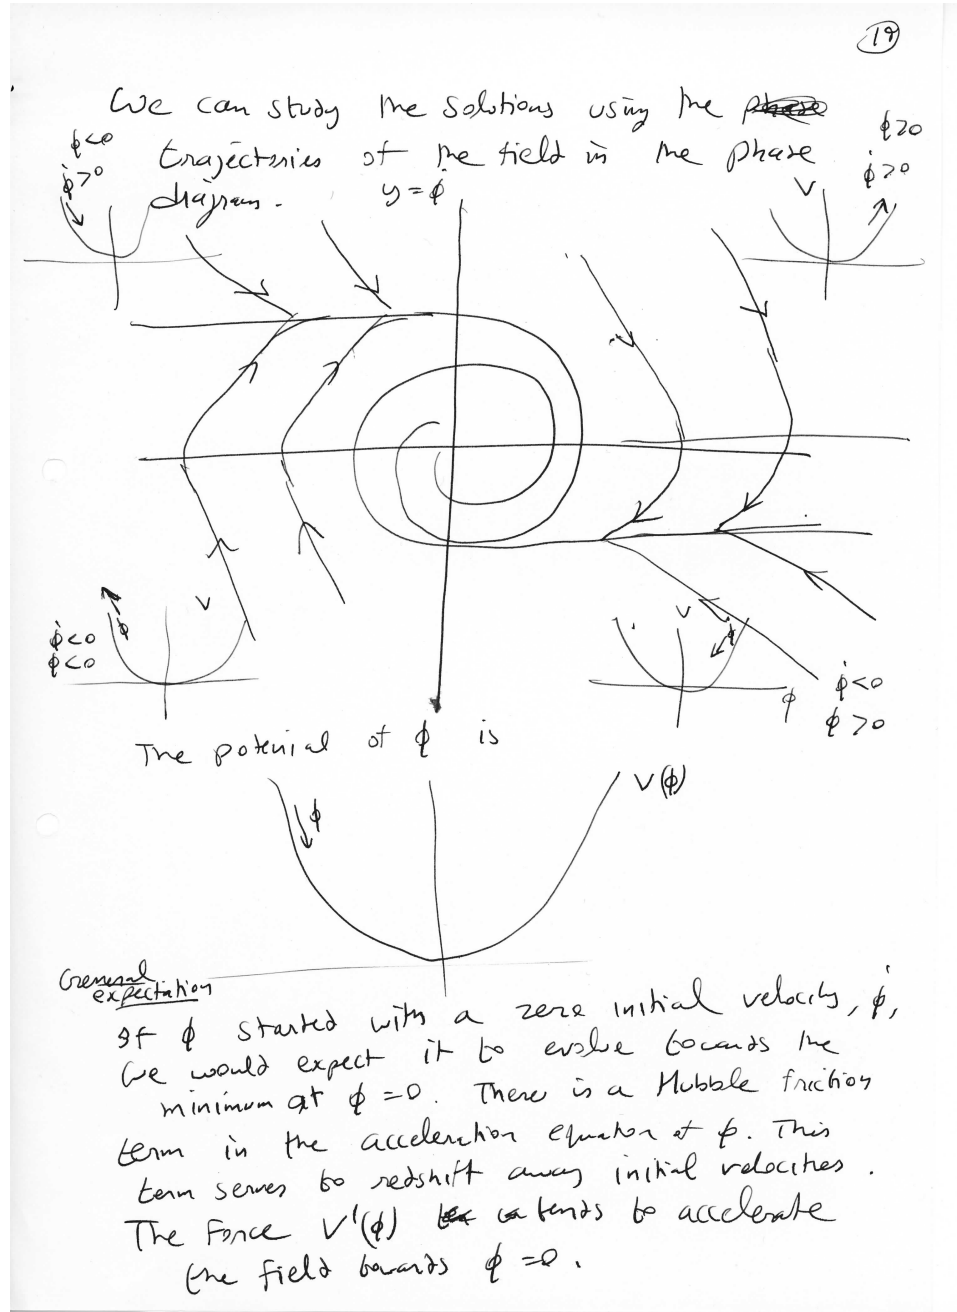 19
We can study the solutions using the
ϕ<0
ϕ≥0
trajectories of the field in the phase
ϕ̇>0
ϕ̇>0
diagram.
y = ϕ̇
V
V
ϕ
V
ϕ
ϕ̇<0
ϕ<0
ϕ
ϕ̇<0
ϕ>0
The potenial of ϕ is
V(ϕ)
ϕ
General
expectation
If ϕ started with a zero initial velocity, ϕ̇,
we would expect it to evolve towards the
minimum at ϕ = 0. There is a Hubble friction
term in the acceleration equation of ϕ. This
term serves to redshift away initial velocities.
The Force V'(ϕ) tends to accelerate
the field towards ϕ = 0.